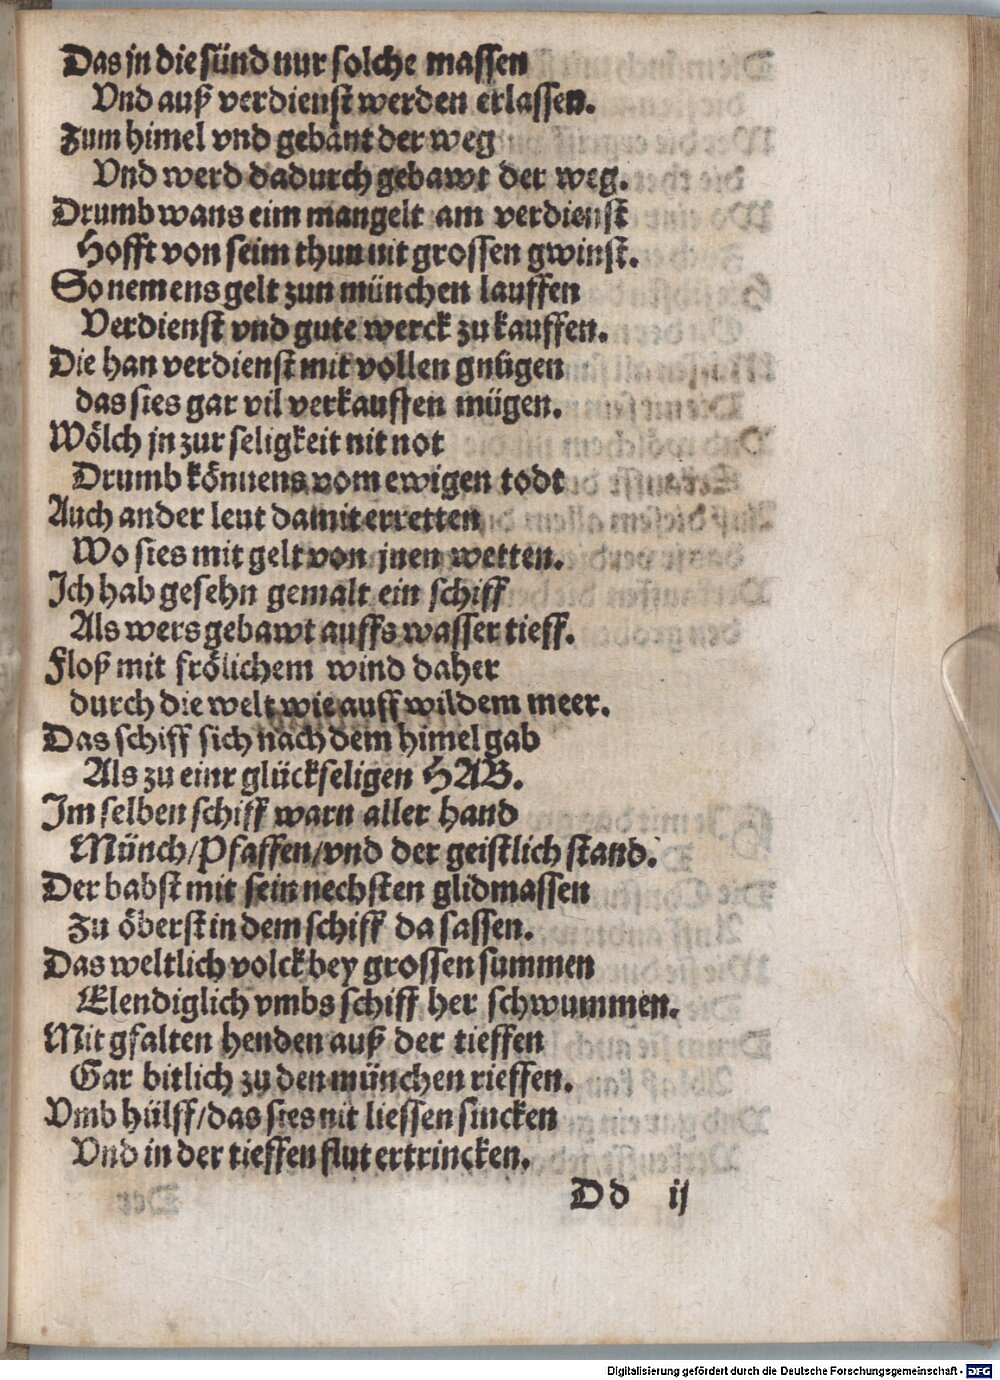 Das jn die sünd nur solche massen
Vnd auß verdienst werden erlassen.
Zum himel vnd gebänt der weg
Vnd werd dadurch gebawt der weg.
Drumb wans eim mangelt am verdienst
Hofft von seim thun nit grossen gwinst.
So nemens gelt zun münchen lauffen
Verdienst vnd gute werck zu kauffen.
Die han verdienst mit vollen gnügen
das sies gar vil verkauffen mügen.
Wölch jn zur seligkeit nit not
Drumb könnens vom ewigen todt
Auch ander leut damit erretten
Wo sies mit gelt von jnen wetten.
Ich hab gesehn gemalt ein schiff
Als wers gebawt auffs wasser tieff.
Floß mit frölichem wind daher
durch die welt wie auff wildem meer.
Das schiff sich nach dem himel gab
Als zu einr glückseligen HAB.
Im selben schiff warn aller hand
Münch/Pfaffen/vnd der geistlich stand.
Der babst mit sein nechsten glidmassen
Zu öberst in dem schiff da sassen.
Das weltlich volck bey grossen summen
Elendiglich vmbs schiff her schwummen.
Mit gfalten henden auß der tieffen
Gar bitlich zu den münchen rieffen.
Vmb hülff/das sies nit liessen sincken
Vnd in der tieffen flut ertrincken.
Dd ij
Digitalisierung gefördert durch die Deutsche Forschungsgemeinschaft - DFG